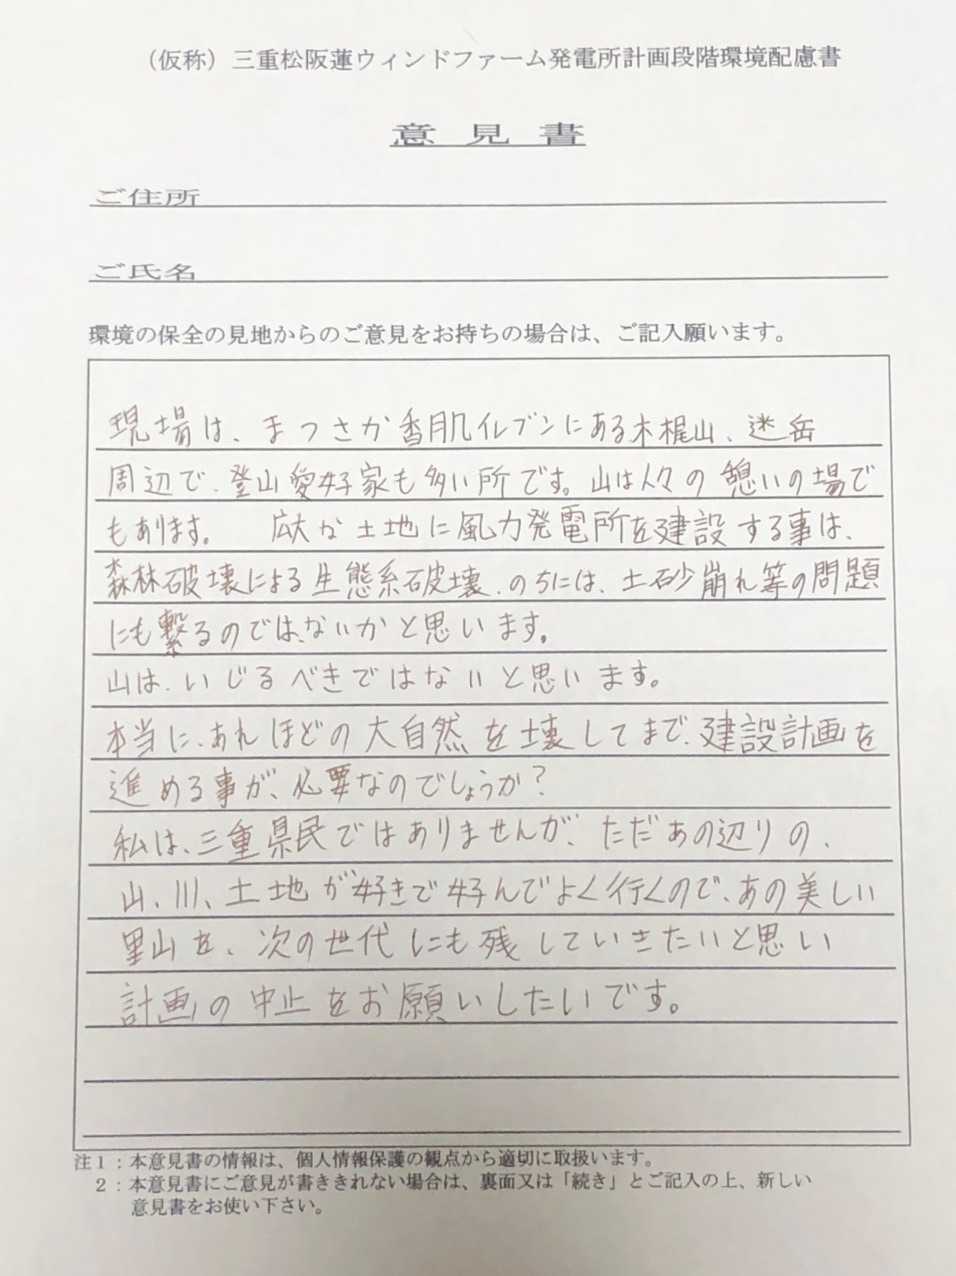 （仮称）三重松阪蓮ウィンドファーム発電所計画段階環境配慮書
意見書
ご住所
ご氏名
環境の保全の見地からのご意見をお持ちの場合は、ご記入願います。
現場は、まつさか香肌イレブンにある木梶山、迷岳
周辺で、登山愛好家も多い所です。山は人々の憩いの場で
もあります。　広大な土地に風力発電所を建設する事は、
森林破壊による生態系破壊、のちには、土砂崩れ等の問題
にも繋るのでは、ないかと思います。
山は、いじるべきではないと思います。
本当に、あれほどの大自然を壊してまで、建設計画を
進める事が、必要なのでしょうか？
私は、三重県民ではありませんが、ただあの辺りの、
山、川、土地が好きで好んでよく行くので、あの美しい
里山を、次の世代にも残していきたいと思い
計画の中止をお願いしたいです。
注１：本意見書の情報は、個人情報保護の観点から適切に取扱います。
２：本意見書にご意見が書ききれない場合は、裏面又は「続き」とご記入の上、新しい
意見書をお使い下さい。